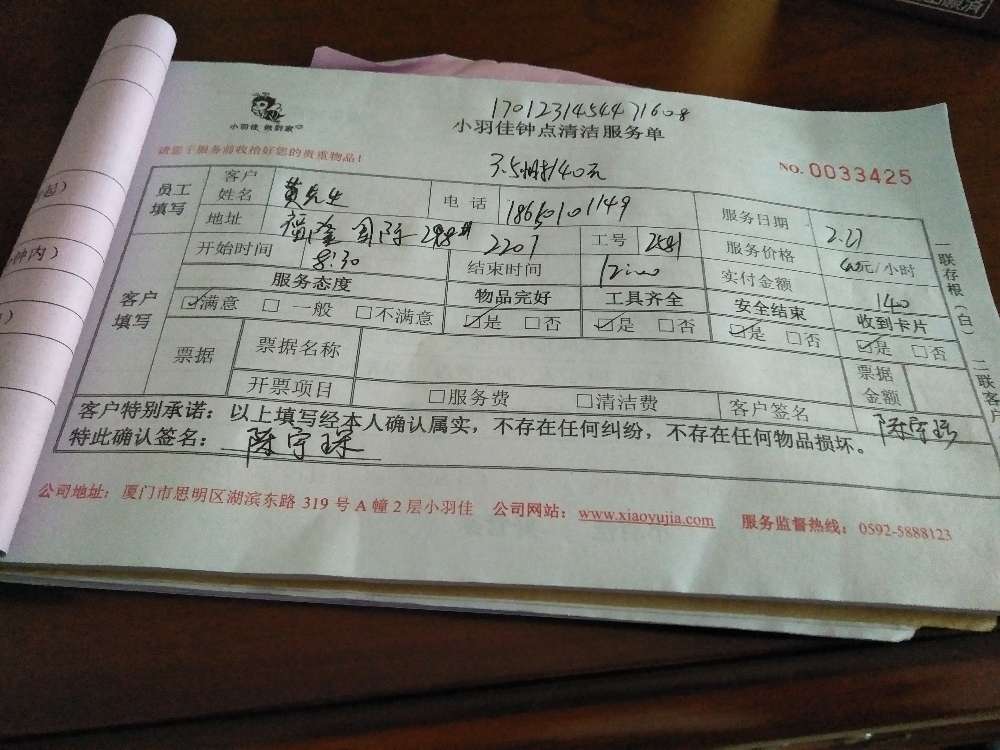 17012314544471608
小羽佳 做到家
小羽佳钟点清洁服务单
请您于服务前收拾好您的贵重物品！
3.5小时140元
NO. 0033425
员工填写 客户姓名 黄先生 电话 18650101149 服务日期 2.27
地址 福隆国际 298# 2207 工号 2581 服务价格 40元/小时
客户填写 开始时间 8:30 结束时间 12:00 实付金额 140
服务态度 物品完好 工具齐全 安全结束 收到卡片
☑满意 □一般 □不满意 ☑是 □否 ☑是 □否 ☑是 □否 ☑是 □否
票据 票据名称 票据金额
开票项目 □服务费 □清洁费 客户签名
客户特别承诺：以上填写经本人确认属实，不存在任何纠纷，不存在任何物品损坏。
特此确认签名：
公司地址：厦门市思明区湖滨东路 319 号 A 幢 2 层小羽佳 公司网站：www.xiaoyujia.com 服务监督热线：0592-5888123
一联存根（白）
二联客户